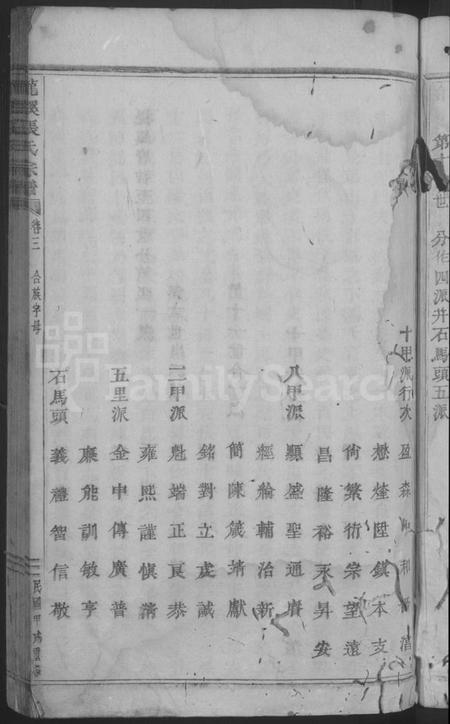 第十 世 分作四派并石馬頭五派
十甲派行次 盈森 和 清
懋煃陞鎮本支
尙繁衍崇望遠
昌隆裕永昇安
八甲派 顯盛聖通廣
經綸輔治新
簡陳箴靖獻
銘對立虔誠
二甲派 魁端正良恭
雍熙謹愼清
五里派 金申傳廣普
廉能訓敏亨
石馬頭 義禮智信敬
張氏宗譜
卷三 合族字母
民國甲
FamilySearch